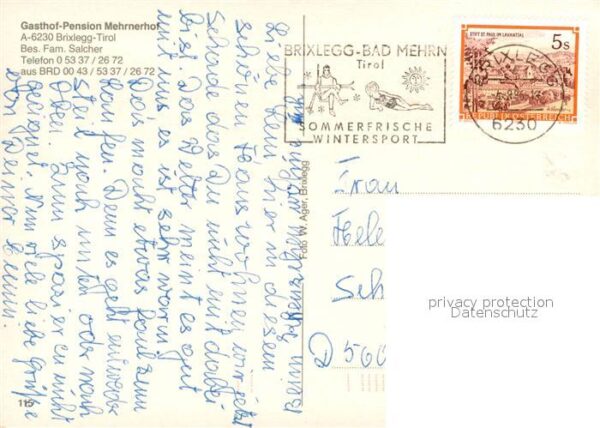 Gasthof-Pension Mehrnerhof
A-6230 Brixlegg-Tirol
Bes. Fam. Salcher
Telefon 0 53 37 / 26 72
aus BRD 00 43 / 53 37 / 26 72
115
Foto W. Ager, Brixlegg
BRIXLEGG-BAD MEHRN
Tirol
SOMMERFRISCHE
WINTERSPORT
STIFT ST. PAUL IM LAVANTTAL
5s
REPUBLIK ÖSTERREICH
BRIXLEGG
6230
Liebe
hier in diesem
schönen Haus wohnen wir jetzt
Schade das du nicht mit dabei
bist. Das Wetter meint es gut
mit uns es ist sehr warm.
Das macht etwas faul zum
laufen. Denn es geht entweder
steil nach unten oder nach
oben. Zum spazieren nicht
geeignet. Nun viele liebe Grüße
von Deiner
Frau
Hele
Sch
D 560
privacy protection
Datenschutz